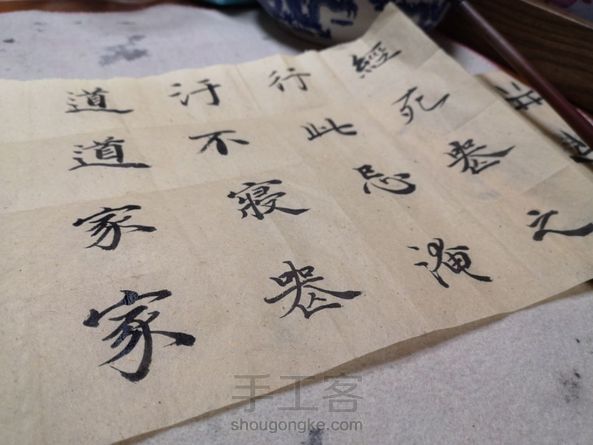 經死喪之
行此忌淹
汙不寢喪
道道家家
手工客
shougongke.com